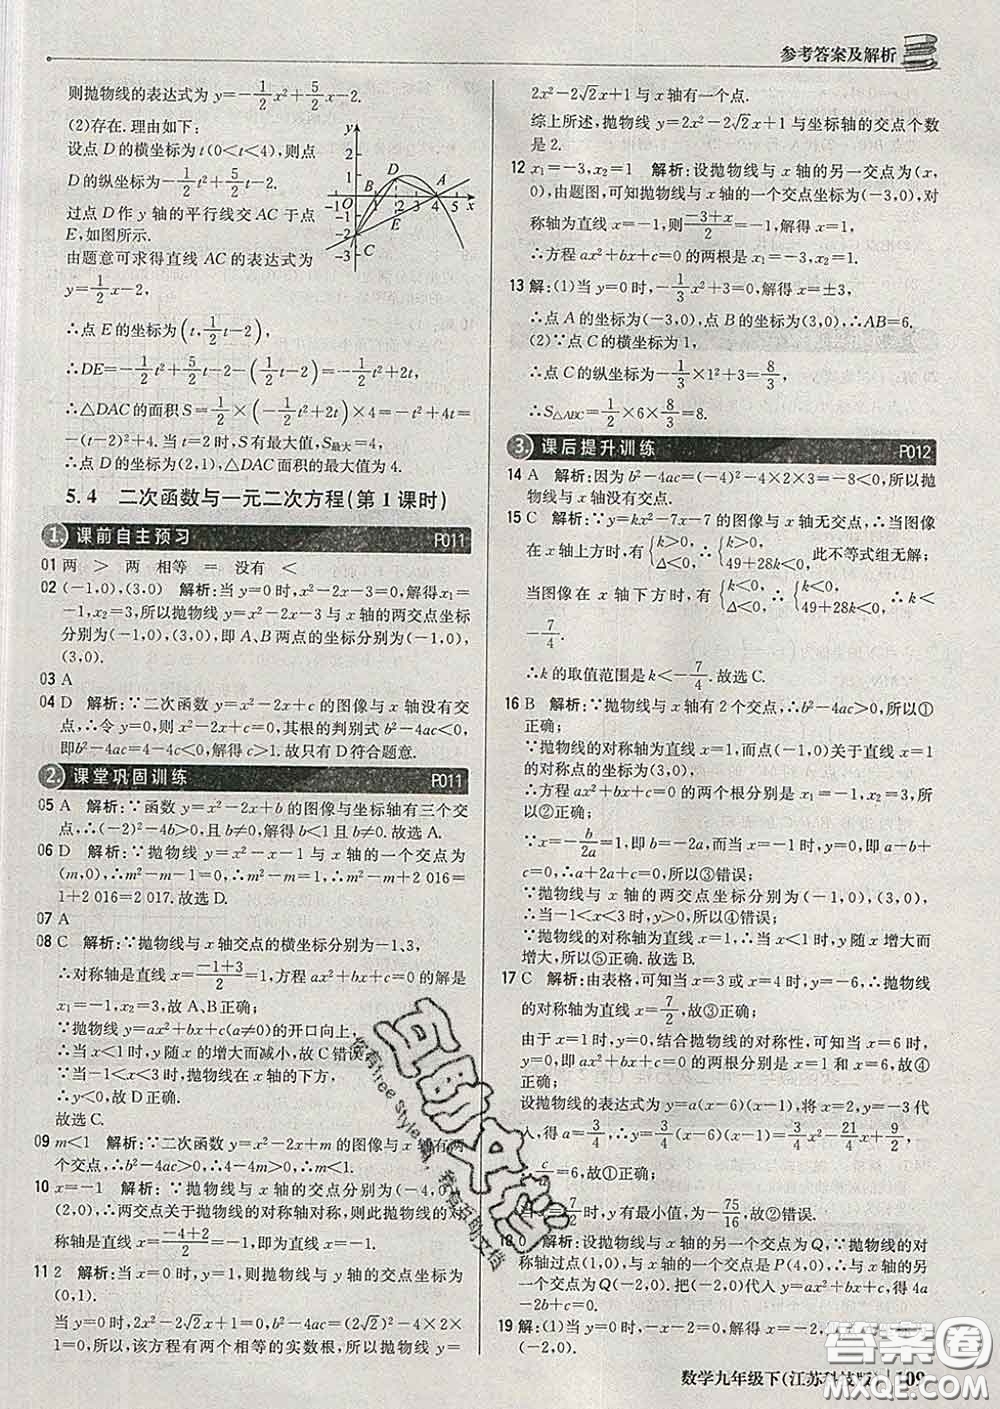 参考答案及解析
则抛物线的表达式为 y=-1/2x²+5/2x-2.
(2)存在. 理由如下:
设点 D 的横坐标为 t(0<t<4),则点
D 的纵坐标为-1/2t²+5/2t-2.
过点 D 作 y 轴的平行线交 AC 于点
E,如图所示.
由题意可求得直线 AC 的表达式为
y=1/2x-2.
∴点 E 的坐标为(t,1/2t-2),
∴DE=-1/2t²+5/2t-2-(1/2t-2)=-1/2t²+2t,
∴△DAC 的面积 S=1/2×(-1/2t²+2t)×4=-t²+4t=
-(t-2)²+4. 当 t=2 时,S 有最大值,S最大=4,
∴△DAC 面积的最大值为 4.
y
2
1
D
B
A
O
1 2 3 4 5
x
-1
-2
-3
E
C
5.4 二次函数与一元二次方程(第 1 课时)
1. 课前自主预习 P011
01 两 > 两 相等 = 没有 <
02 (-1,0),(3,0) 解析:当 y=0 时,x²-2x-3=0,解得x₁=
-1,x₂=3,所以抛物线 y=x²-2x-3 与 x 轴的两交点坐标
分别为(-1,0),(3,0),即 A、B 两点的坐标分别为(-1,0),
(3,0).
03 A
04 D 解析:∵二次函数 y=x²-2x+c 的图像与 x 轴没有交
点,∴令 y=0,则 x²-2x+c=0,其根的判别式 b²-4ac<0,
即b²-4ac=4-4c<0,解得 c>1. 故只有 D 符合题意.
2. 课堂巩固训练 P011
05 A 解析:∵函数 y=x²-2x+b 的图像与坐标轴有三个交
点,∴(-2)²-4b>0,且 b≠0,解得 b<1 且 b≠0. 故选 A.
06 D 解析:∵抛物线 y=x²-x-1 与 x 轴的一个交点为
(m,0),∴m²-m-1=0,∴m²-m=1,∴m²-m+2 016=
1+2 016=2 017. 故选 D.
07 A
08 C 解析:∵抛物线与 x 轴交点的横坐标分别为-1、3,
∴对称轴是直线 x=(-1+3)/2=1,方程 ax²+bx+c=0 的解是
x₁=-1,x₂=3,故 A、B 正确;
∵抛物线 y=ax²+bx+c(a≠0)的开口向上,
∴当 x<1 时,y 随 x 的增大而减小,故 C 错误
∵当-1<x<3 时,抛物线在 x 轴的下方,
∴y<0,故 D 正确.
故选 C.
09 m<1 解析:∵二次函数 y=x²-2x+m 的图像与 x 轴有两
个交点,∴b²-4ac>0,∴4-4m>0,∴m<1.
10 x=-1 解析:∵抛物线与 x 轴的交点分别为(-4,0),
(2,0),∴两交点关于抛物线的对称轴对称,则此抛物线的对
称轴是直线 x=(-4+2)/2=-1,即直线 x=-1.
11 2 解析:当 x=0 时,y=1,则抛物线与 y 轴的交点坐标为
(0,1).
当 y=0 时,2x²-2√2x+1=0,b²-4ac=(2√2)²-4×2×
1=0,所以,该方程有两个相等的实数根,所以抛物线 y=
2x²-2√2x+1 与 x 轴有一个点.
综上所述,抛物线 y=2x²-2√2x+1 与坐标轴的交点个数
是 2.
12 x₁=-3,x₂=1 解析:设抛物线与 x 轴的另一交点为(x,
0),由题图,可知抛物线与 x 轴的一个交点坐标为(-3,0),对
称轴为直线 x=-1,则(-3+x)/2=-1,解得 x=1,
∴方程 ax²+bx+c=0 的两根是 x₁=-3,x₂=1.
13 解:(1)当 y=0 时,-1/3x²+3=0,解得 x=±3,
∴点 A 的坐标为(-3,0),点 B 的坐标为(3,0),∴AB=6.
(2)∵点 C 的横坐标为 1,
∴点 C 的纵坐标为-1/3×1²+3=8/3,
∴S△ABC=1/2×6×8/3=8.
3. 课后提升训练 P012
14 A 解析:因为 b²-4ac=(-4)²-4×1×5=-4<0,所以抛
物线与 x 轴没有交点.
15 C 解析:∵y=kx²-7x-7 的图像与 x 轴无交点,∴当图像
在 x 轴上方时,有{k>0, Δ<0,∴{k>0, 49+28k<0,此不等式组无解;
当图像在 x 轴下方时,有{k<0, Δ<0,∴{k<0, 49+28k<0,∴k<
-7/4.
∴k 的取值范围是 k<-7/4. 故选 C.
16 B 解析:∵抛物线与 x 轴有 2 个交点,∴b²-4ac>0,所以①
正确;
∵抛物线的对称轴为直线 x=1,而点(-1,0)关于直线
x=1的对称点的坐标为(3,0),
∴方程 ax²+bx+c=0 的两个根分别是 x₁=-1,x₂=3,所
以②正确;
∵x=-b/2a=1,即 b=-2a,而 x=-1 时,y=0,即 a-b+
c=0,∴a+2a+c=0,所以③错误;
∵抛物线与 x 轴的两交点坐标分别为(-1,0),(3,0),
∴当-1<x<3 时,y>0,所以④错误;
∵抛物线的对称轴为直线 x=1,∴当 x<1 时,y 随 x 增大而
增大,所以⑤正确. 故选 B.
17 C 解析:由表格,可知当 x=3 或 x=4 时,y=-6,∴抛物线
的对称轴为直线 x=7/2,故③正确;
由于 x=1 时,y=0,结合抛物线的对称性,可知当 x=6 时,
y=0,∴方程 ax²+bx+c=0 的两个根分别为 x=1 和 x=6,故④
正确;
设抛物线的表达式为 y=a(x-1)(x-6),将 x=2,y=-3 代
入,得 a=3/4,∴y=3/4(x-1)(x-6)=3/4x²-21/4x+9/2,
∴c/a=6,故①正确;
7/2 时,y 有最小值,最小值为-75/16,故②错误. 故选 C.
18 0 解析:设抛物线与 x 轴的另一个交点为 Q,∵抛物线的对
称轴过点(1,0),与 x 轴的一个交点是 P(4,0),∴与 x 轴的另
一个交点为 Q(-2,0). 把(-2,0)代入 y=ax²+bx+c,得 4
a-2b+c=0.
19 解:(1)当 x=0 时,y=
(-2,0).
数学九年级下(江苏科技版) 109
答案圈
MXQE.COM